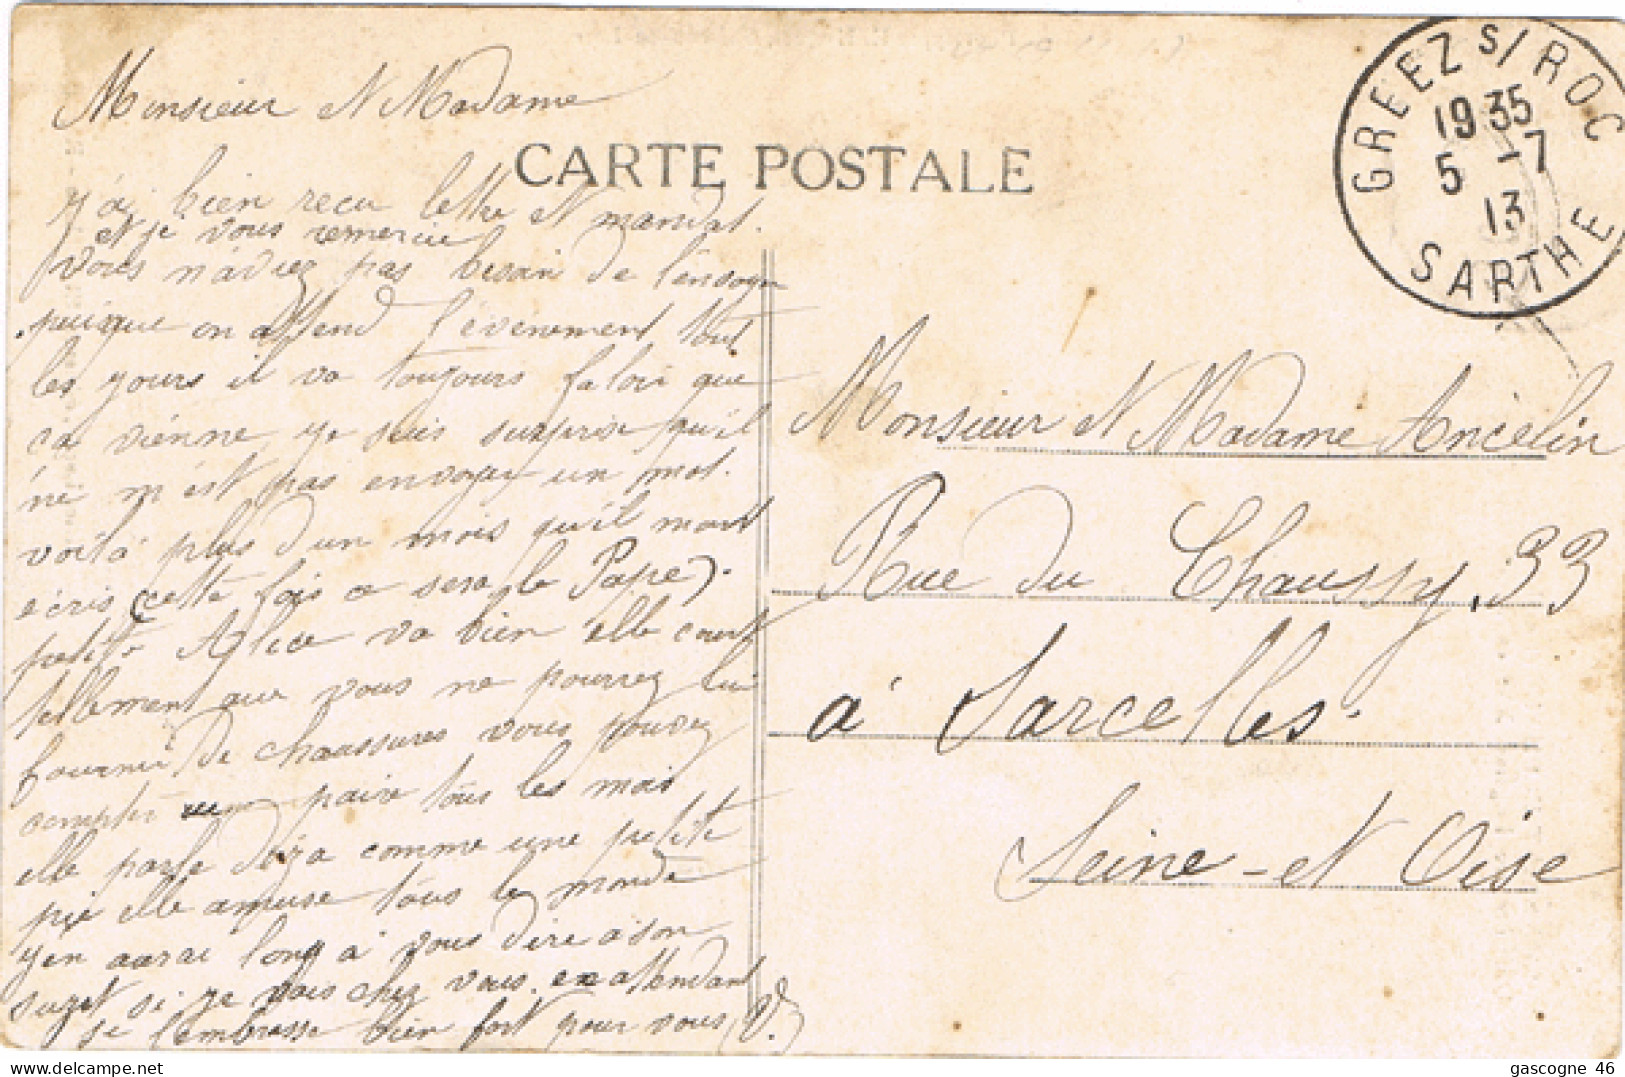 Monsieur et Madame
CARTE POSTALE
y'ai bien recu lettre et mandat.
et je vous remercie
vous n'aviez pas besoin de l'envoyer
puisque on attend l'évenement tout
les yours il va toujours faloir que
ca vienne, ye suis surprise qu'il
ne m'est pas envoyer un mot.
voilà plus d'un mois qu'il m'ont
écris (cette fois ce sera le Pape).
petite Alice va bien elle court
tellement que vous ne pourrez lui
fournir de chaussures vous pouvez
compter une paire tous les mois
elle parle déja comme une petite
pie elle amuse tous le monde
y'en aurai long à vous dire a son
suget si ye vais chez vous. en attendant
je l'embrasse bien fort pour vous V.
GREEZ S/ROC
1935
5 -7
13
SARTHE
Monsieur et Madame Ancelin
Rue du Chaussy, 33
à Sarcelles.
Seine-et Oise
gascogne 46